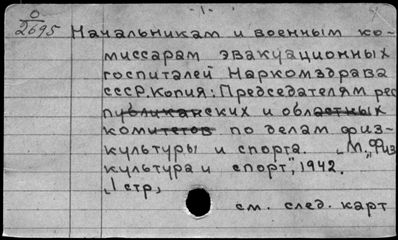 - 1. -
0
2695
Начальникам и военным ко-
миссарам эвакуационных
госпиталей Наркомздрава
СССР. Копия: Председателям рес
публиканских и областных
комитетов по делам физ-
культуры и спорта. М., "Физ
культура и спорт", 1942.
1 стр,
см. след. карт